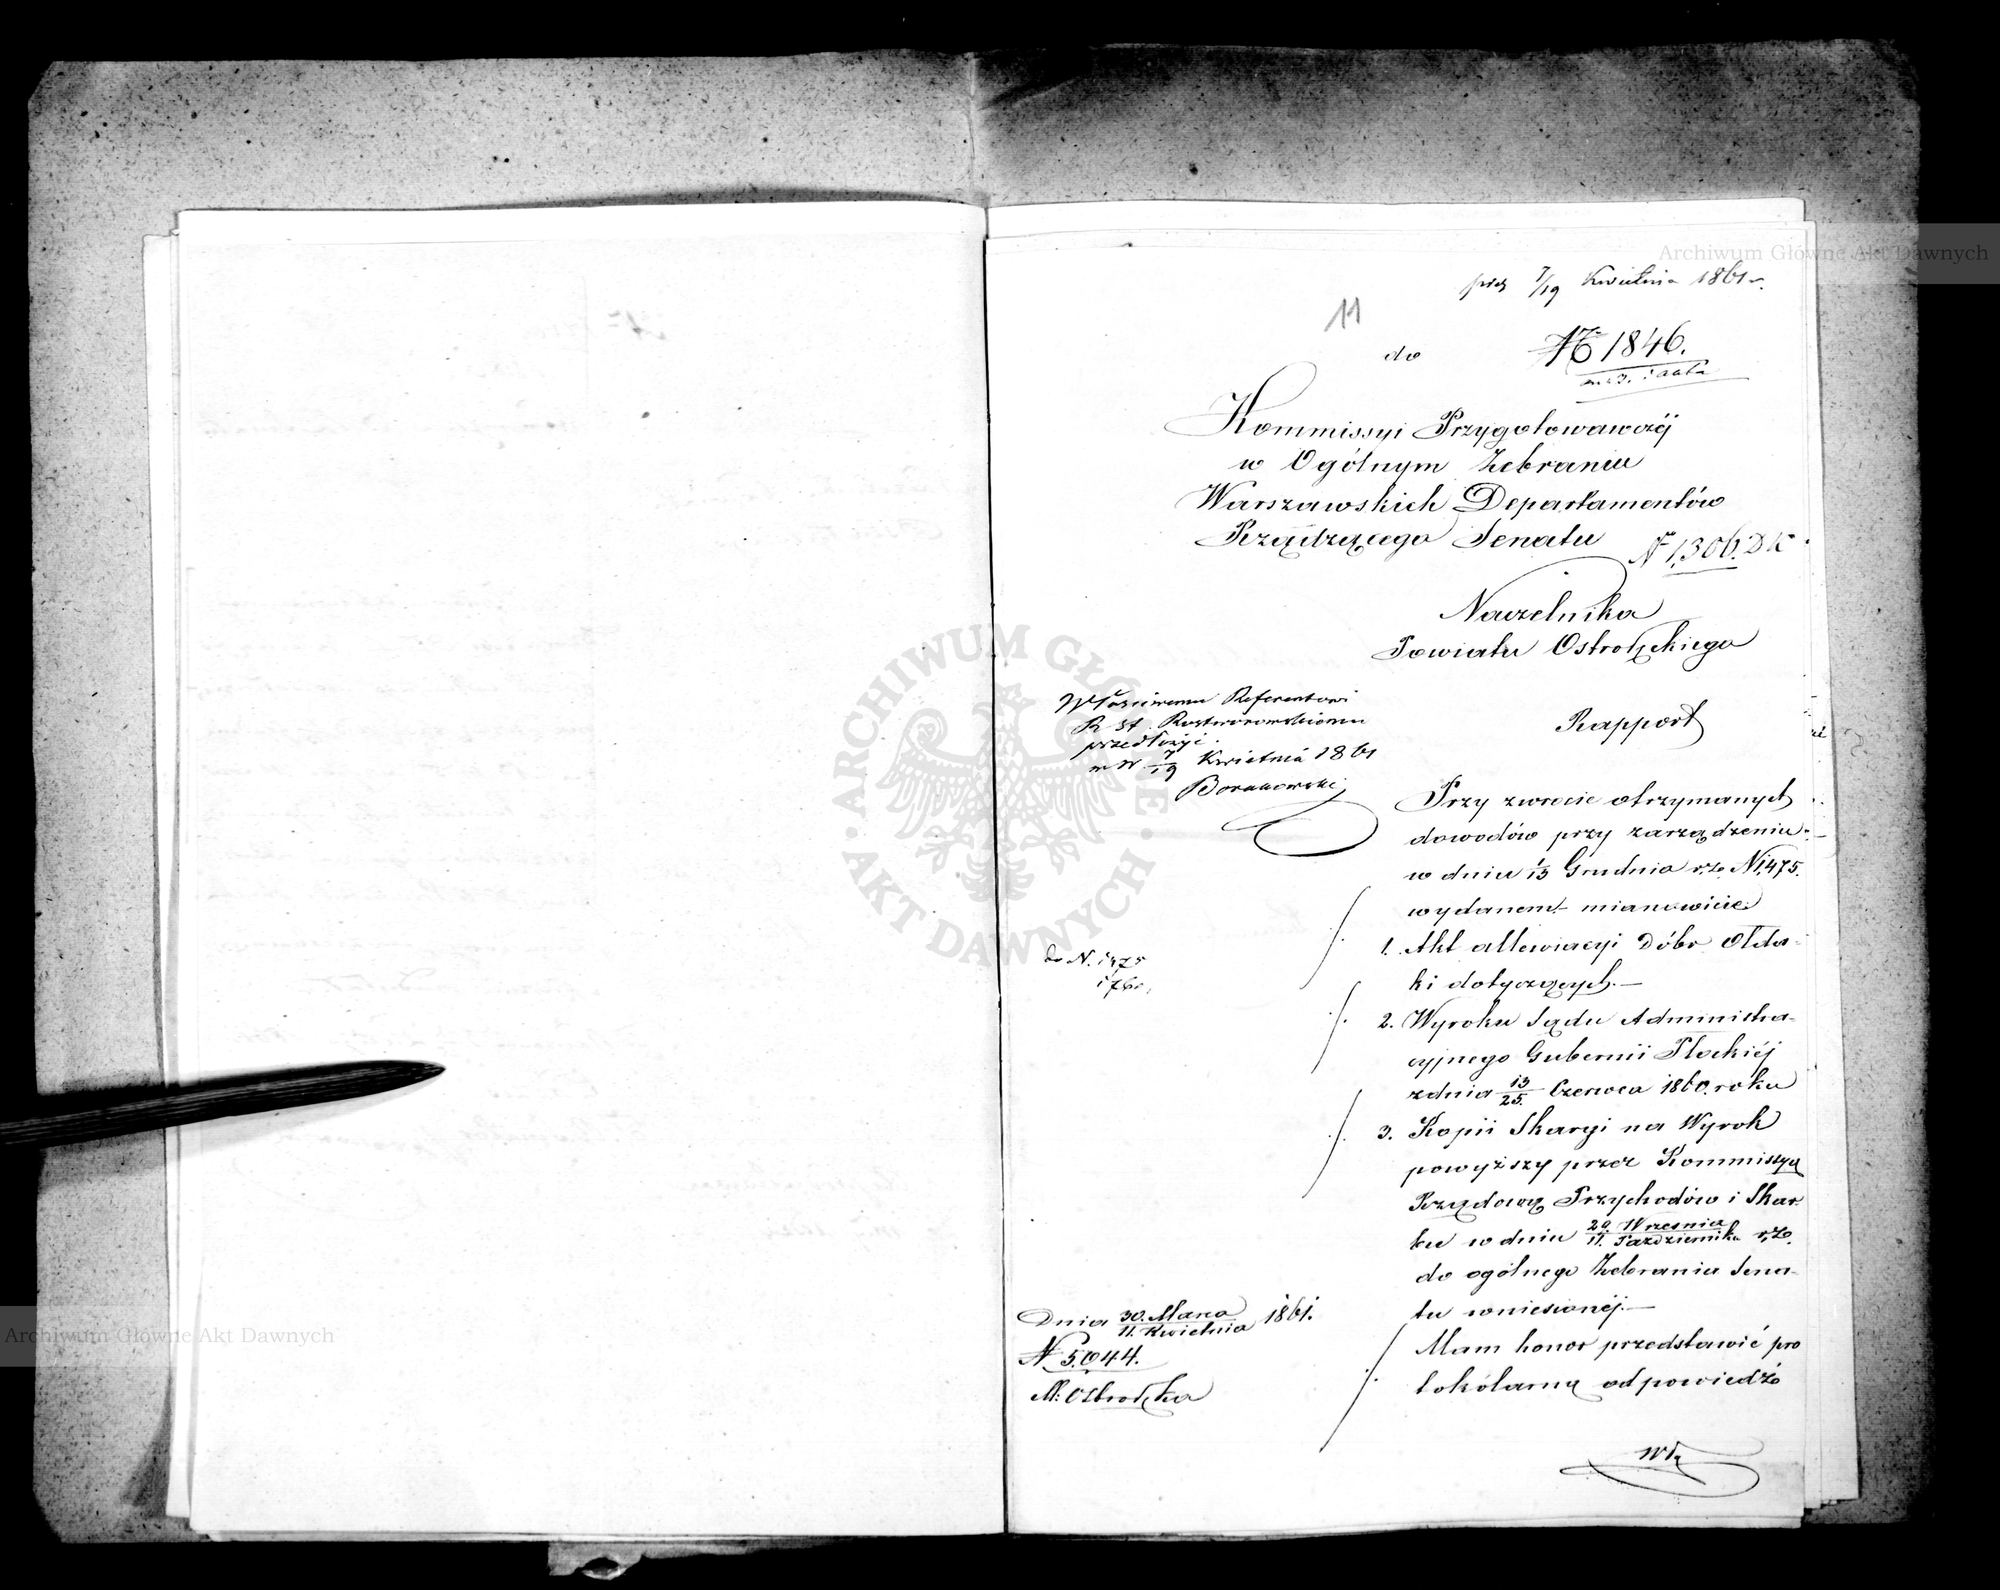 prez 7/19 Kwietnia 1861 r.
11
do
№ 1846.
Kommissyi Przygotowawczéj
w Ogólnym Zebraniu
Warszawskich Departamentów
Rządzącego Senatu
N 1,306. DK
Naczelnika
Powiatu Ostrołęckiego
Właściwemu Referentowi
R. St. Rostworowskiemu
przedłożyć.
w W. 7/19 Kwietnia 1861
Rapport
Przy zwrocie otrzymanych
dowodów przy zarządzeniu
w dniu 1/13 Grudnia r.z. N 1,475.
wydanem mianowicie
do N. 1475
1. Akt allewiacyi Dóbr Ołda-
ki dotyczących.—
2. Wyroku Sądu Administra-
cyjnego Gubernii Płockiéj
z dnia 13/25. Czerwca 1860. roku
3. Kopii Skargi na Wyrok
powyższy przez Kommissyą
Rządową Przychodów i Skar-
bu w dniu 29. Września/11. Października r.z.
do ogólnego Zebrania Sena-
tu wniesionéj.—
Mam honor przedstawić pro
tokólarną odpowiedź
Dnia 30. Marca/11. Kwietnia 1861.
N 5,044.
M: Ostrołęka
Archiwum Główne Akt Dawnych
Archiwum Główne Akt Dawnych
ARCHIWUM GŁÓWNE · AKT DAWNYCH ·